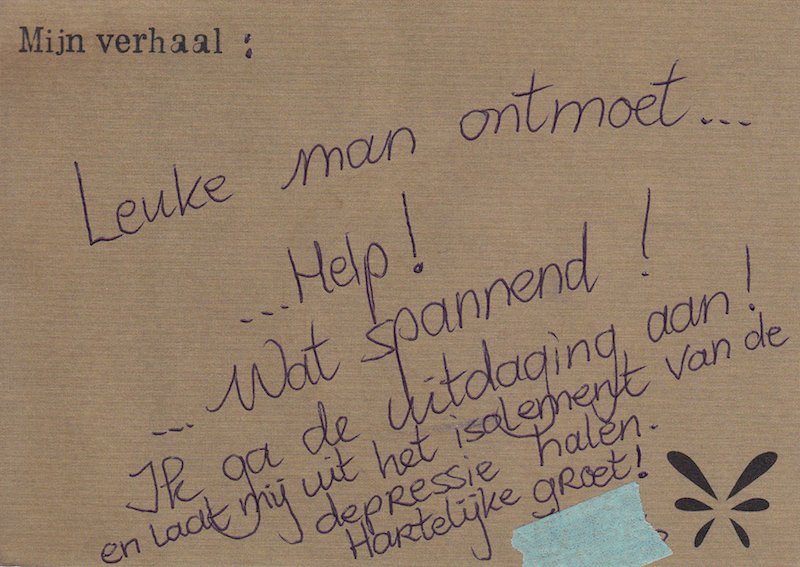 Mijn verhaal :
Leuke man ontmoet...
...Help!
...Wat spannend!
Ik ga de uitdaging aan!
en laat mij uit het isolement van de
depressie halen.
Hartelijke groet!